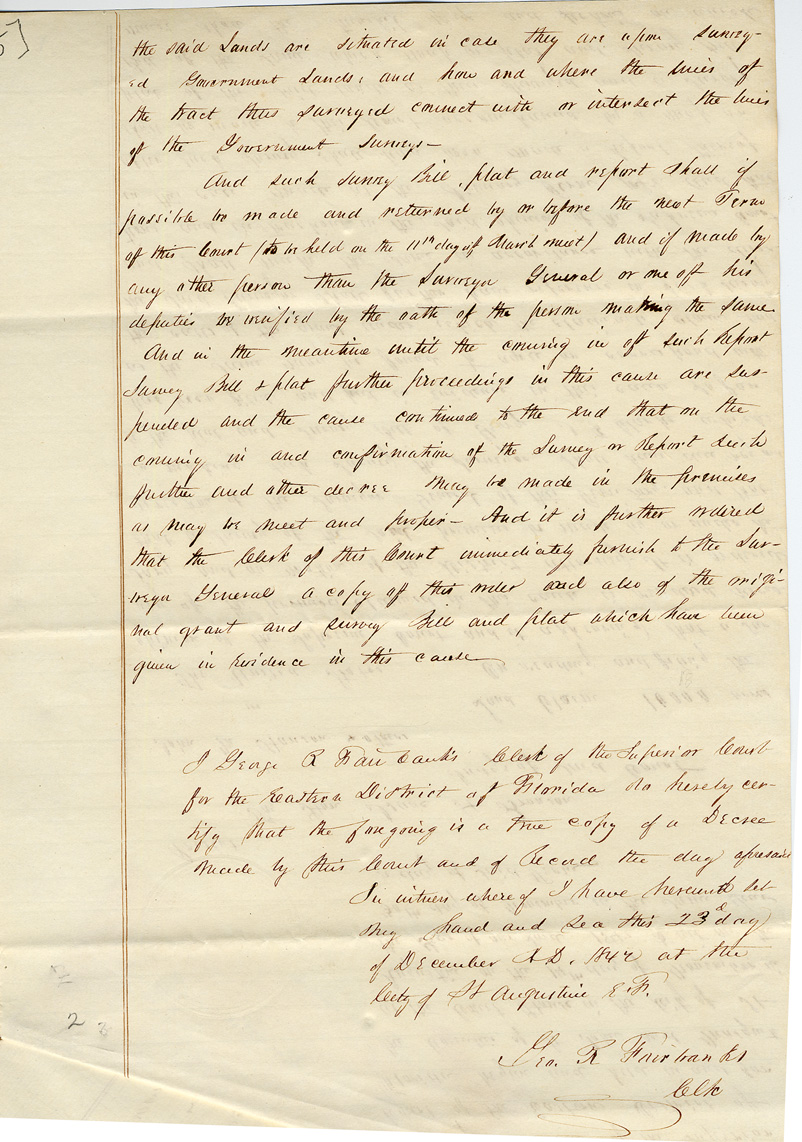 5]
the said Lands are situated in case they are upon survey-
ed Government Lands; and how and where the lines of
the tract thus surveyed connect with or intersect the lines
of the Government surveys-
And such Survey Bill, plat and report shall if
possible be made and returned by or before the next Term
of this Court (to be held on the 11th day of March next) and if made by
any other person than the Surveyor General or one of his
deputies be verified by the oath of the person making the same
And in the meantime until the coming in of such Report
Survey Bill & plat further proceedings in this cause are sus-
pended and the cause continued to the end that on the
coming in and confirmation of the Survey or Report such
further and other decree may be made in the premises
as may be meet and proper- And it is further ordered
that the Clerk of this Court immediately furnish to the Sur-
veyor General a copy of this order and also of the origi-
nal grant and survey Bill and plat which have been
given in Evidence in this cause
I George R Fairbanks Clerk of the Superior Court
for the Eastern District of Florida do hereby cer-
tify that the foregoing is a true copy of a Decree
made by this Court and of Record the day aforesaid
In witness whereof I have hereunto set
my hand and sea this 23d day
of December A.D. 1842 at the
City of St Augustine E.F.
Geo. R Fairbanks
Clk
2